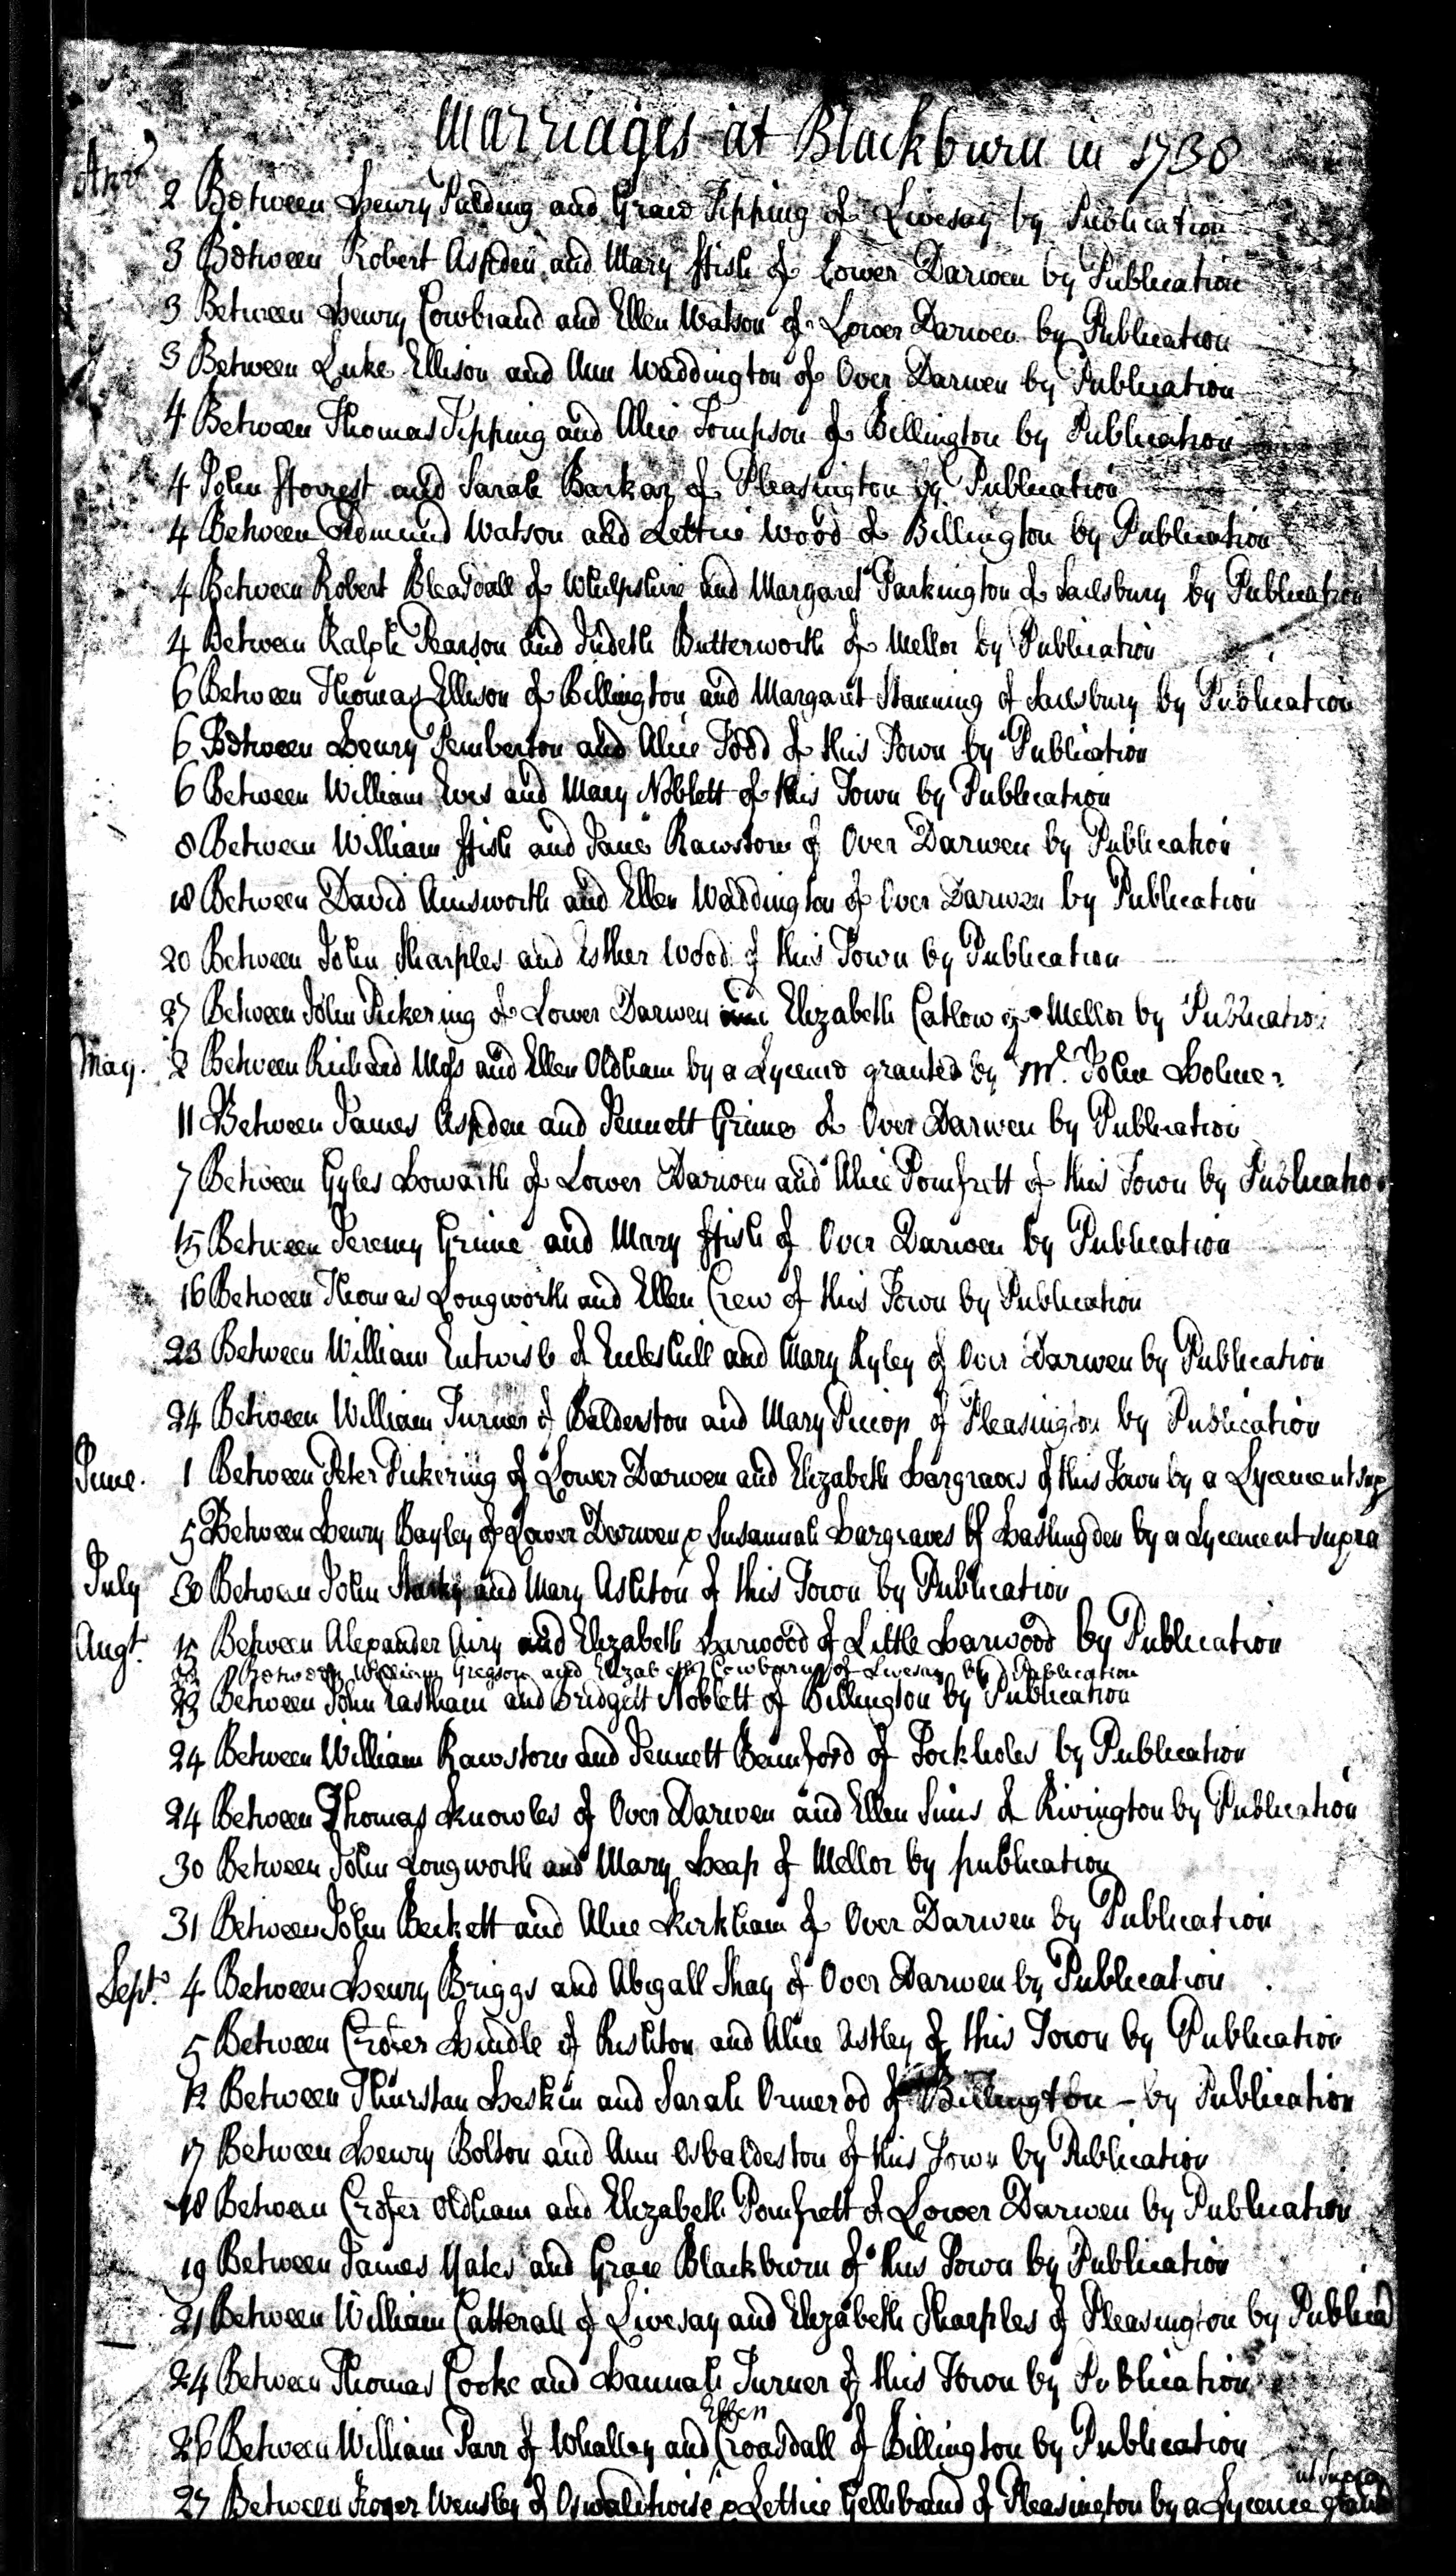 Marriages at Blackburn in 1738
Apr
2 Between Henry Palding and Grace Tipping of Livesay by Publication
3 Between Robert Aspden and Mary ffish of Lower Darwen by Publication
3 Between Henry Cowbrand and Ellen Watson of Lower Darwen by Publication
3 Between Luke Ellison and Ann Waddington of Over Darwen by Publication
4 Between Thomas Tipping and Alice Tompson of Billington by Publication
4 John fforrest and Sarah Barkar of Pleasington by Publication
4 Between Edmund Watson and Lettice Wood of Billington by Publication
4 Between Robert Bleasdall of Whilpshire and Margaret Parkington of Sailsbury by Publication
4 Between Ralph Pearson and Judeth Butterworth of Mellor by Publication
6 Between Thomas Ellison of Billington and Margaret Stanning of Sailsbury by Publication
6 Between Henry Pemberton and Alice Todd of this Town by Publication
6 Between William Eves and Mary Noblett of this Town by Publication
8 Between William ffish and Jane Rawstorn of Over Darwen by Publication
18 Between David Ainsworth and Ellen Waddington of Over Darwen by Publication
20 Between John Sharples and Esther Wood of this Town by Publication
27 Between John Pickering of Lower Darwen and Elizabeth Catlow of Mellor by Publication
May. 2 Between Richard Moss and Ellen Oldham by a Lycence granted by Mr. John Holme
11 Between James Aspden and Jennett Grime of Over Darwen by Publication
7 Between Gyles Howarth of Lower Darwen and Alice Pomfrett of this Town by Publicatio
15 Between Jeremy Grime and Mary ffish of Over Darwen by Publication
16 Between Thomas Longworth and Ellen Crew of this Town by Publication
23 Between William Entwisle of Eccleshill and Mary Ryley of Over Darwen by Publication
24 Between William Turner of Balderston and Mary Piccop of Pleasington by Publication
June. 1 Between Peter Pickering of Lower Darwen and Elizabeth Hargraves of this Town by a Lycence ut sup
5 Between Henry Bayley of Lower Darwen & Susannah Hargraves of Haslingden by a Lycence ut supra
July 30 Between John and Mary Ashton of this Town by Publication
Augt. 15 Between Alexander Airy and Elizabeth Harwood of Little Harwood by Publication
22 Between William Gregson and Elizabeth Cowburn of Livesay by Publication
23 Between John Eastham and Bridgett Noblett of Billington by Publication
24 Between William Rawstorn and Jennett Bamford of Tockholes by Publication
24 Between Thomas Knowles of Over Darwen and Ellen Sims of Rivington by Publication
30 Between John Longworth and Mary Heap of Mellor by publication
31 Between John Beckett and Alice Kirkham of Over Darwen by Publication
Sept. 4 Between Henry Briggs and Abigall Shay of Over Darwen by Publication
5 Between Crofer Hindle of Rishton and Alice Astley of this Town by Publication
12 Between Thurstan Heskin and Sarah Ormerod of Billington - by Publication
17 Between Henry Bolton and Ann Osbaldeston of this Town by Publication
18 Between Crofer Oldham and Elizabeth Pomfrett of Lower Darwen by Publication
19 Between James Yates and Grace Blackburn of this Town by Publication
21 Between William Catterall of Livesay and Elizabeth Sharples of Pleasington by Publica
24 Between Thomas Cooke and Hannah Turner of this Town by Publication
26 Between William Parr of Whalley and Ellen Croasdall of Billington by Publication
27 Between Roger Wensley of Oswaldtwisle & Lettice Gellibrand of Pleasington by a Lycence ut supra